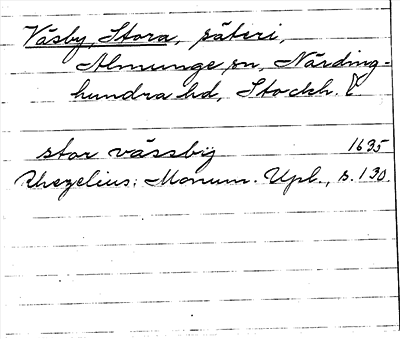 Väsby, Stora, säteri,
Almunge sn, Närding-
hundra hd, Stockh.
stor vässbÿ 1635
Rhezelius: Monum. Upl., s. 130.